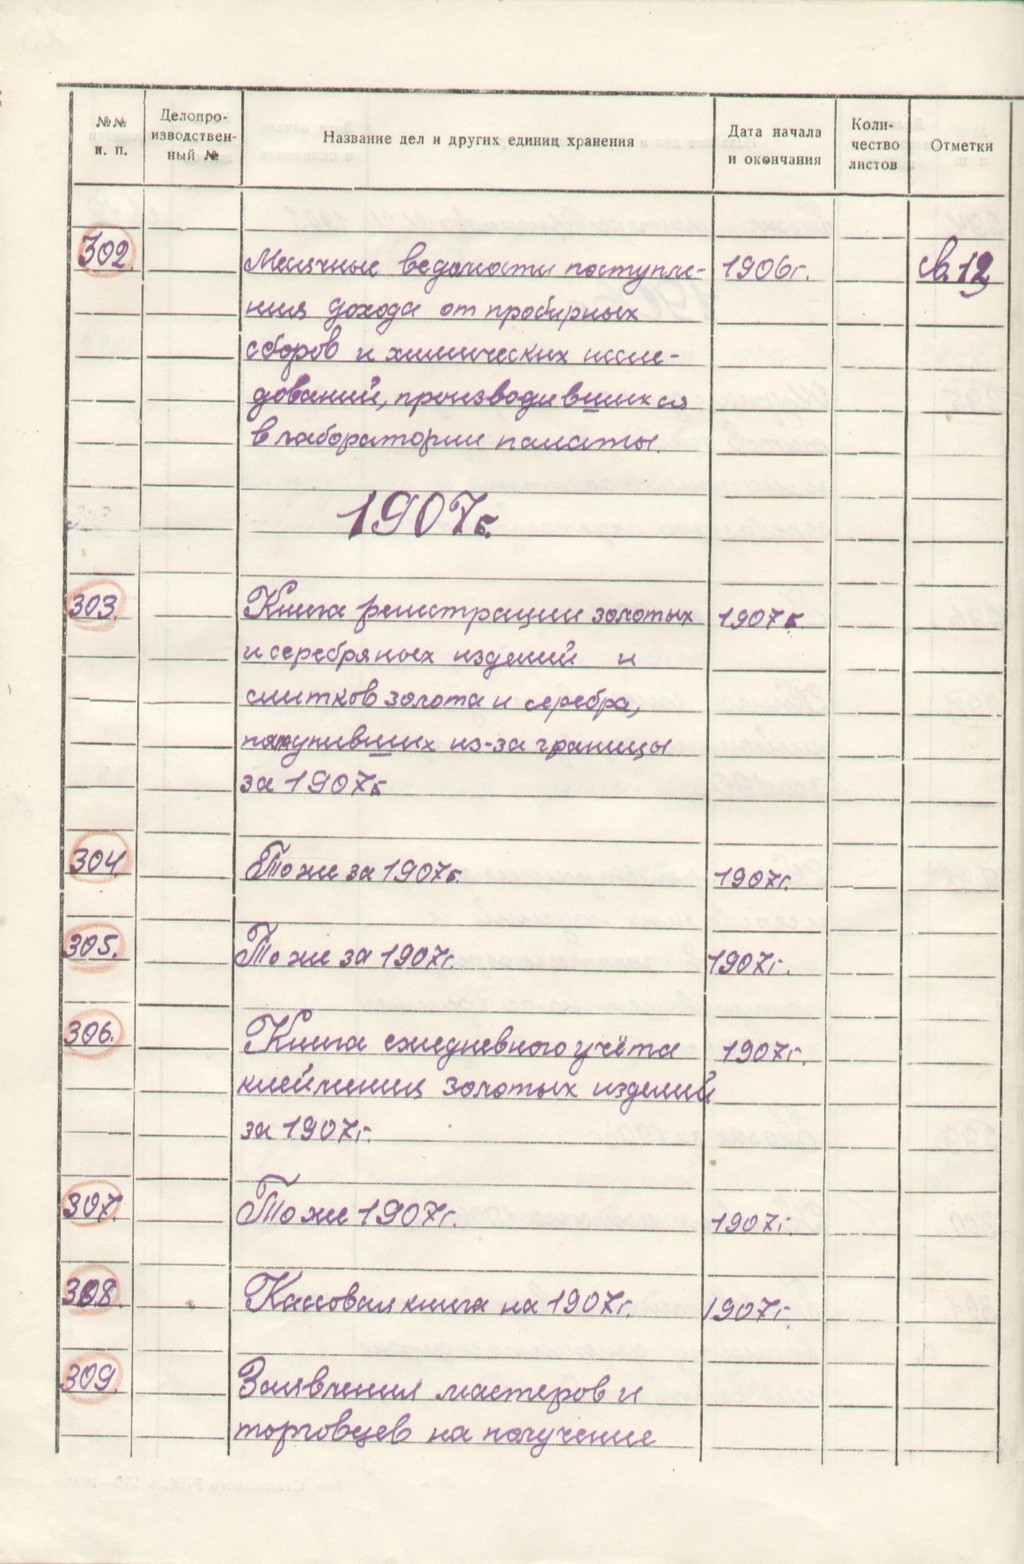 №№ п. п.
Делопро-
изводствен-
ный №
Название дел и других единиц хранения
Дата начала
и окончания
Коли-
чество
листов
Отметки
302. Месячные ведомости поступле- 1906г. св.12
ния дохода от пробирных
сборов и химических иссле-
дований, производившихся
в лаборатории палаты.
1907г.
303. Книга регистрации золотых 1907г.
и серебряных изделий и
слитков золота и серебра,
поступивших из-за границы
за 1907г.
304 То же за 1907г. 1907г.
305. То же за 1907г. 1907г.
306. Книга ежедневного учёта 1907г.
клеймения золотых изделий
за 1907г.
307. То же 1907г. 1907г.
308. Кассовая книга на 1907г. 1907г.
309. Заявления мастеров и
торговцев на получение